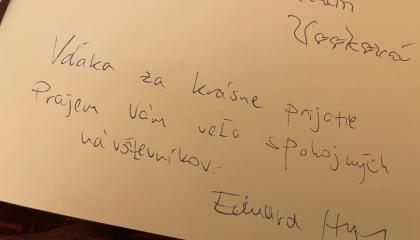 Vďáka za krásne prijatie
Prajem Vám veľa spokojných
návštevníkov.
Eduard